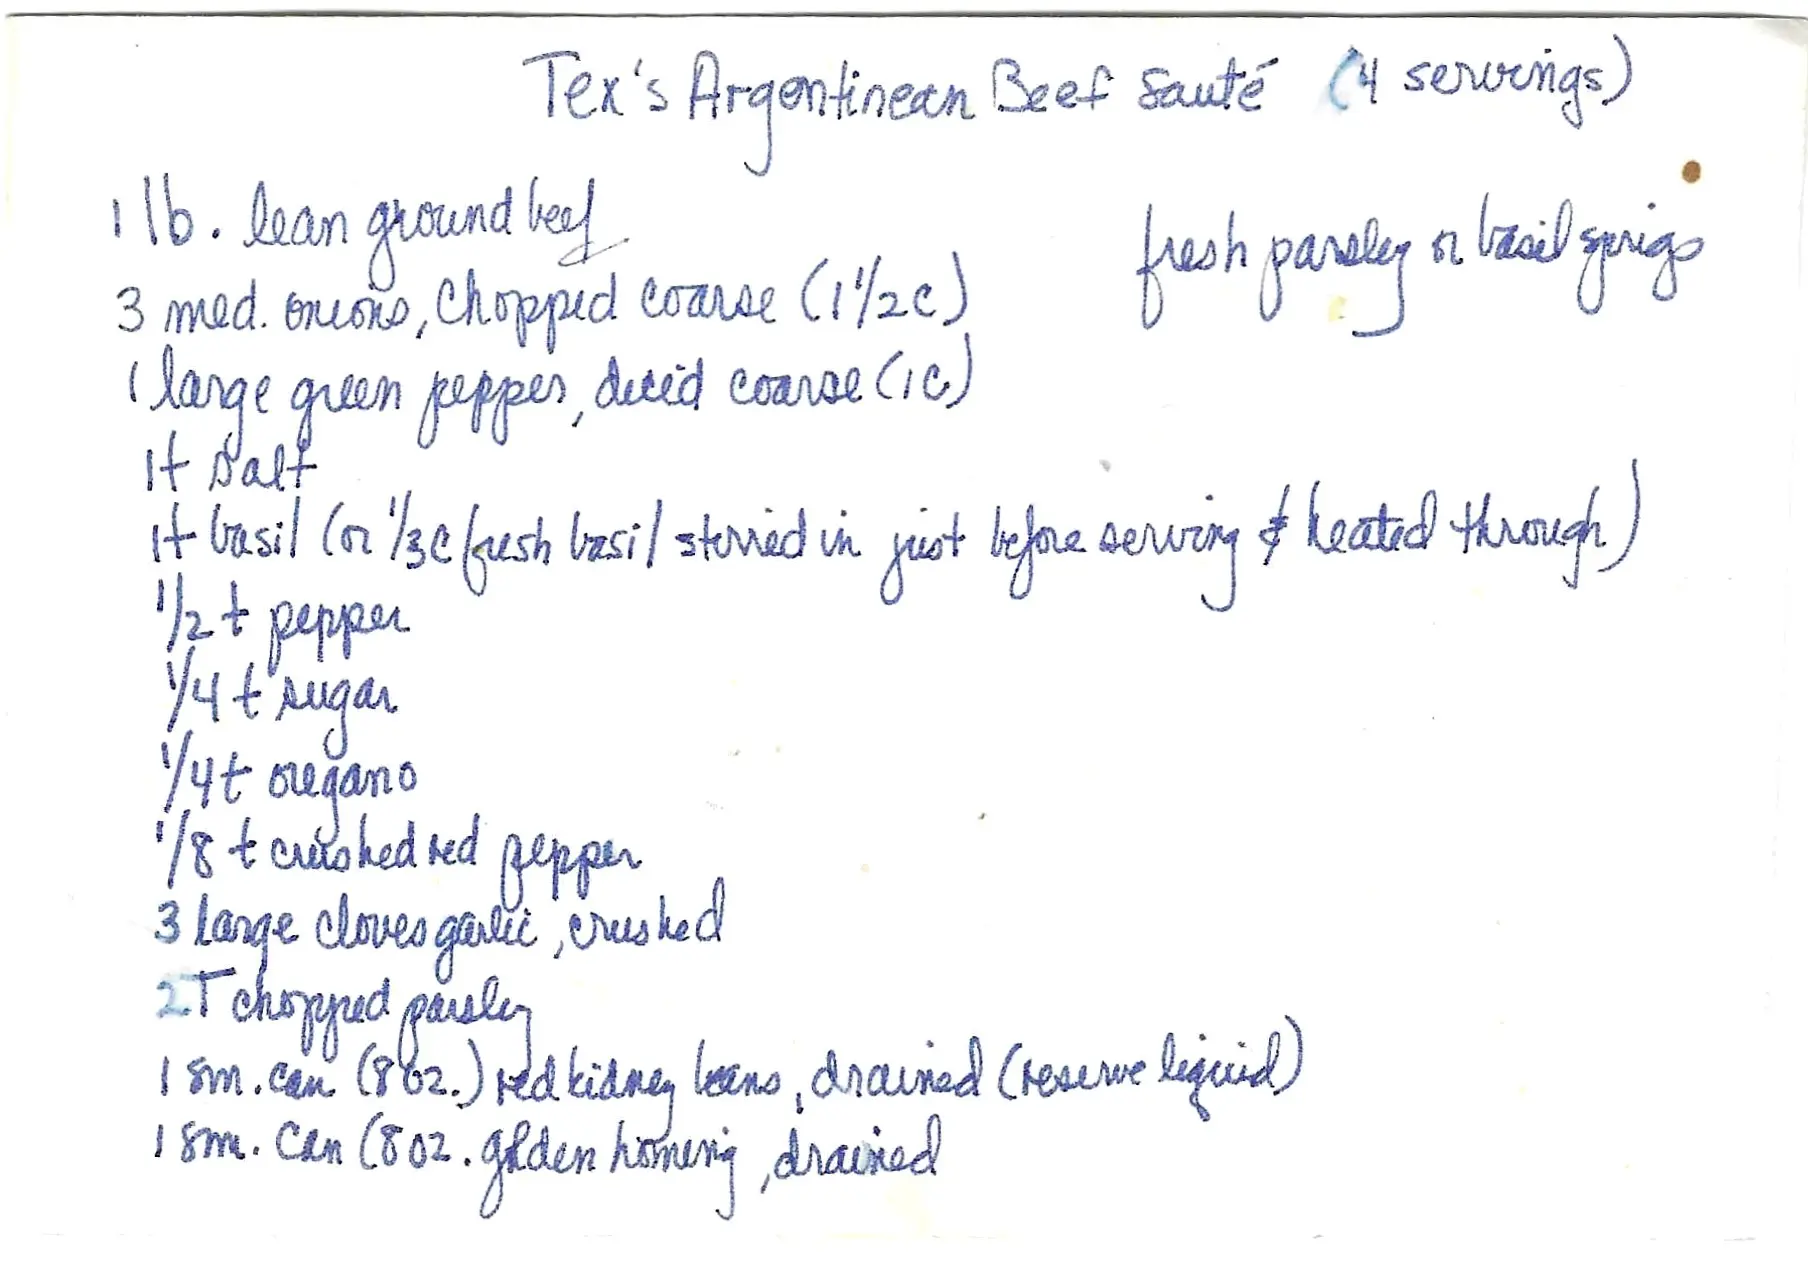 Tex's Argentinean Beef Sauté (4 servings)
1 lb. lean ground beef
fresh parsley or basil sprigs
3 med. onions, chopped coarse (1 1/2 c)
1 large green pepper, diced coarse (1 c)
1 t salt
1 t basil (or 1/3 c fresh basil stirred in just before serving & heated through)
1/2 t pepper
1/4 t sugar
1/4 t oregano
1/8 t crushed red pepper
3 large cloves garlic, crushed
2 T chopped parsley
1 sm. can (8 oz.) red kidney beans, drained (reserve liquid)
1 sm. can (8 oz. golden hominy, drained